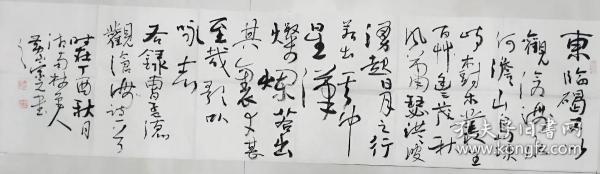 東臨碣石以
觀滄海水
何澹山島
峙樹木叢生
百草豐茂秋
風蕭瑟洪波
湧起日月之行
若出其中
星漢
燦爛若出
其裏幸甚
至哉歌以
詠志
右錄曹孟德
觀滄海詩一首
時在丁酉秋月
孔夫子旧书网
www.kongfz.com